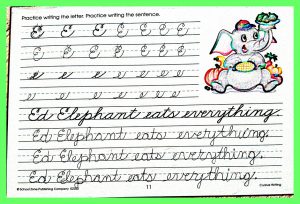 Practice writing the letter. Practice writing the sentence.
E E E E E E E
E E E E E E E
e e e e e e e
e e e e e e e
Ed Elephant eats everything.
Ed Elephant eats everything.
Ed Elephant eats everything.
Ed Elephant eats everything.
© School Zone Publishing Company 11 Cursive Writing